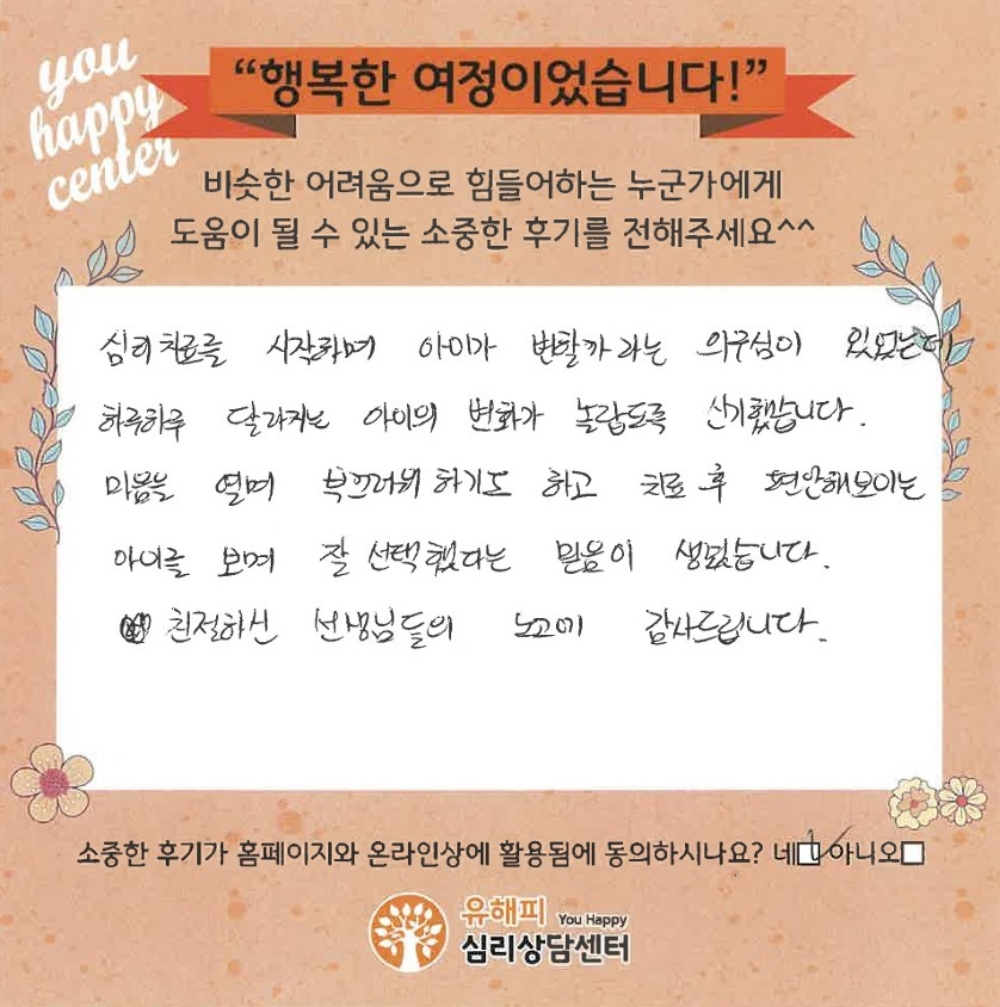 you
happy
center
“행복한 여정이었습니다!”
비슷한 어려움으로 힘들어하는 누군가에게
도움이 될 수 있는 소중한 후기를 전해주세요^^
심리치료를 시작하며 아이가 변할까라는 의구심이 있었는데
하루하루 달라지는 아이의 변화가 놀랍도록 신기했습니다.
마음을 열며 부끄러워 하기도 하고 치료 후 편안해보이는
아이를 보며 잘 선택했다는 믿음이 생겼습니다.
친절하신 선생님들의 노고에 감사드립니다.
소중한 후기가 홈페이지와 온라인상에 활용됨에 동의하시나요? 네☑ 아니오□
유해피 You Happy
심리상담센터